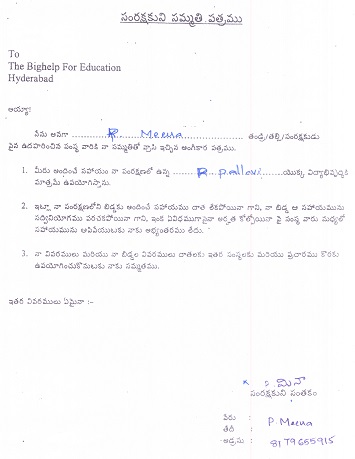 సంరక్షకుని సమ్మతి పత్రము
To
The Bighelp For Education
Hyderabad
అయ్యా!
నేను అనగా ........ R Meena ........ తండ్రి/తల్లి/సంరక్షకుడు
పైన ఉదహరించిన సంస్థ వారికి నా సమ్మతితో వ్రాసి ఇచ్చిన అంగీకార పత్రము.
1. మీరు అందించే సహాయం నా సంరక్షణలో ఉన్న ........ R pallavi ........యొక్క విద్యాభివృద్ధికి
మాత్రమే ఉపయోగిస్తాను.
2. ఇట్లా నా సంరక్షణలోని బిడ్డకు అందించే సహాయము దాత లేకపోయినా గాని, నా బిడ్డ ఆ సహాయమును
సద్వినియోగము పరచకపోయినా గాని, ఇంక ఏవిధముగానైనా అర్హత కోల్పోయినా పై సంస్థ వారు మధ్యలో
సహాయమును ఆపివేయుటకు నాకు అభ్యంతరము లేదు.
3. నా వివరములు మరియు నా బిడ్డల వివరములు దాతలకు ఇతర సంస్థలకు మరియు ప్రచారము కొరకు
ఉపయోగించుకొనుటకు నాకు సమ్మతము.
ఇతర వివరములు ఏమైనా :-
మీనా
సంరక్షకుని సంతకం
పేరు : P. Meena
తేది :
అడ్రసు : 8179655915